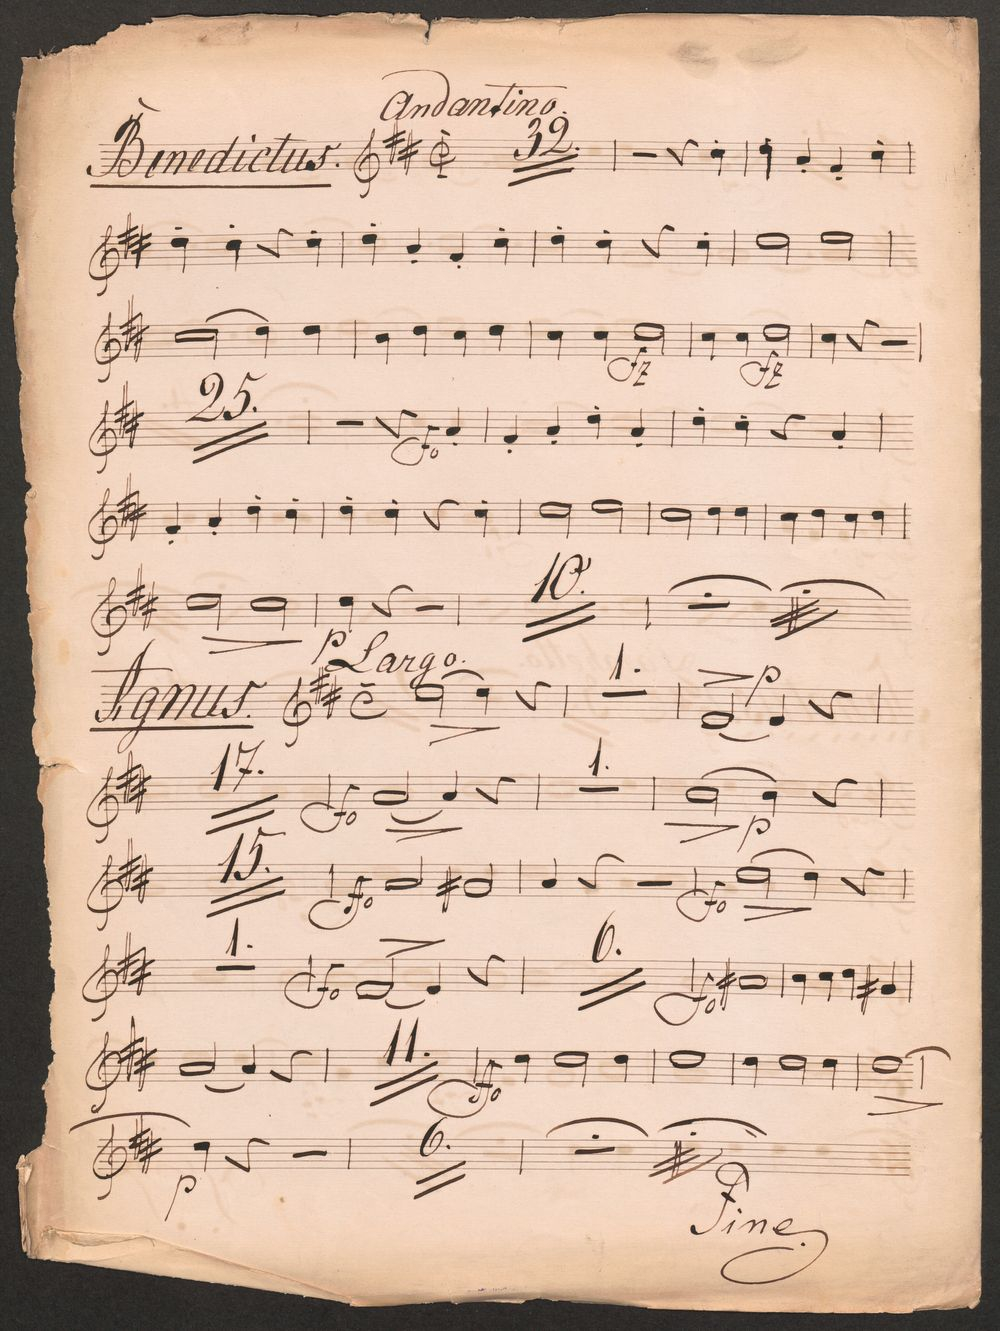 Andantino.
Benedictus. 32.
fz fz
25.
fo
10.
p
Largo.
Agnus. 1. p
17. 1.
fo p
15.
fo fo
1. 6.
fo fo
11.
fo
6.
p
Fine.